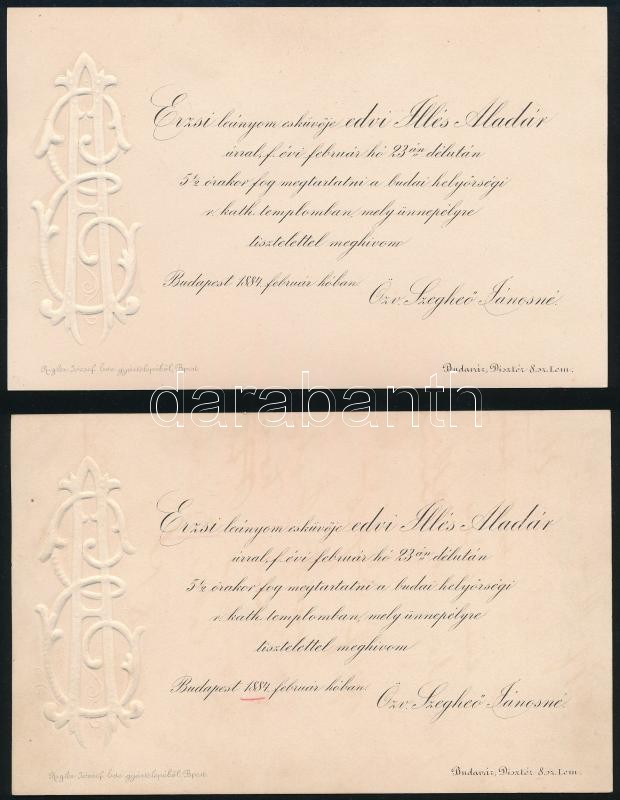 Erzsi leányom esküvője edvi Illés Aladár
úrral, f. évi február hó 23án délután
5½ órakor fog megtartatni a budai helyőrségi
r. kath. templomban, mely ünnepélyre
tisztelettel meghivom
Budapest 1884. február hóban.
Özv. Szegheő Jánosné.
Rigler József Ede gyártelepéből, Bpest.
Budavár, Disztér 8. sz. I. em.
darabanth
Erzsi leányom esküvője edvi Illés Aladár
úrral, f. évi február hó 23án délután
5½ órakor fog megtartatni a budai helyőrségi
r. kath. templomban, mely ünnepélyre
tisztelettel meghivom
Budapest 1884. február hóban.
Özv. Szegheő Jánosné.
Rigler József Ede gyártelepéből, Bpest.
Budavár, Disztér 8. sz. I. em.